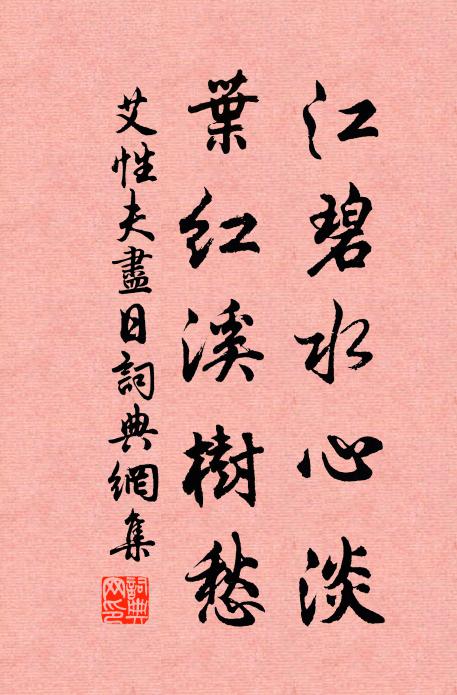 江碧水心淡
葉紅溪樹愁
艾性夫盡日詞典網集
詞典网印